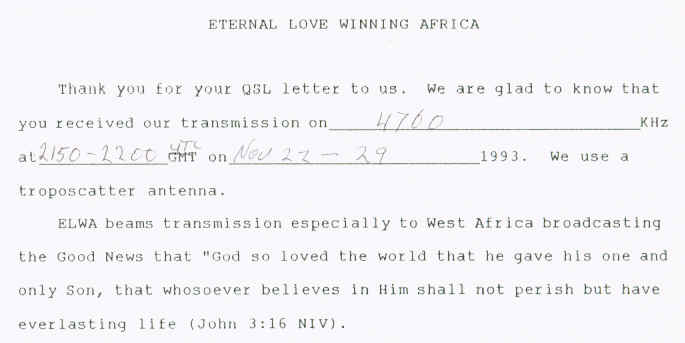 ETERNAL LOVE WINNING AFRICA
Thank you for your QSL letter to us. We are glad to know that
you received our transmission on 4760 KHz
at 2150-2200 UTC GMT on Nov 22 - 29 1993. We use a
troposcatter antenna.
ELWA beams transmission especially to West Africa broadcasting
the Good News that "God so loved the world that he gave his one and
only Son, that whosoever believes in Him shall not perish but have
everlasting life (John 3:16 NIV).